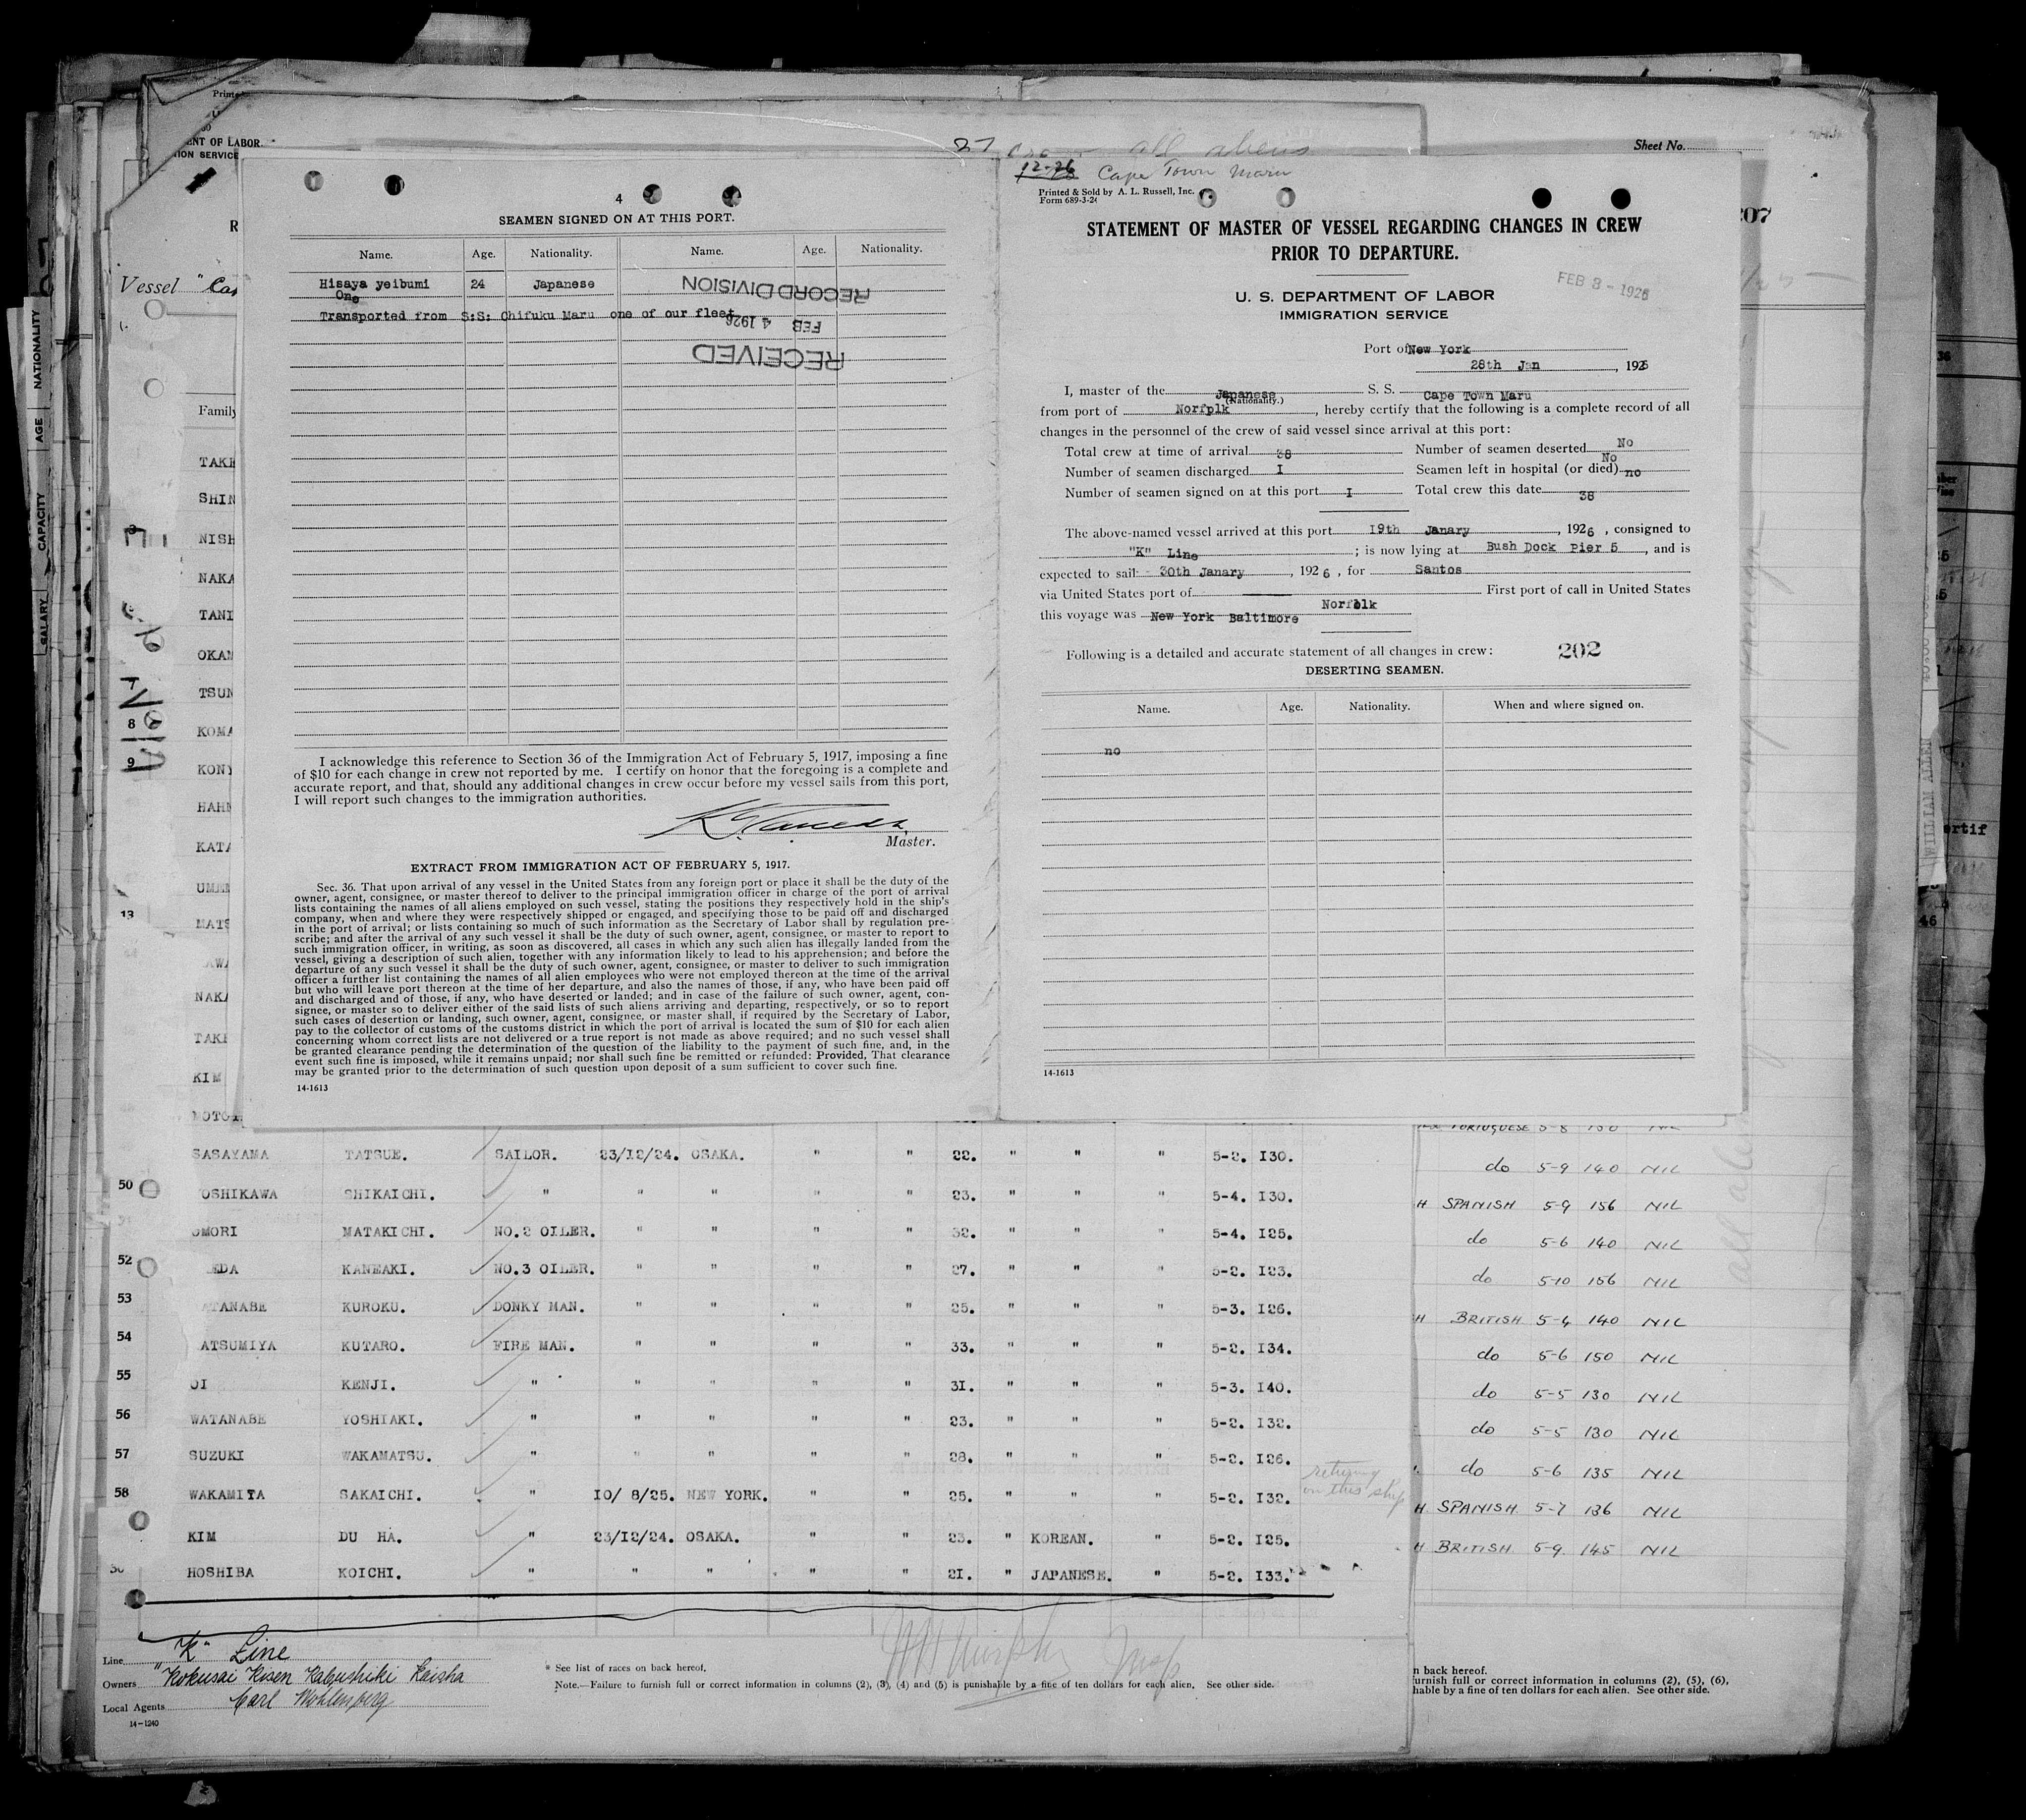 Sheet No.
27 crew all aliens
NT OF LABOR
ION SERVICE
Vessel "
Family
TAKE
SHIN
NISH
NAKA
TANI
OKAN
TSUN
KOMA
KONY
HAHN
KATA
UMEM
MATS
NAKA
TAKE
KIM
NATIONALITY
AGE
CAPACITY
SALARY
8
9
13
207
WILLIAM ALLEN
4
SEAMEN SIGNED ON AT THIS PORT.
Name. Age. Nationality. Name. Age. Nationality.
Hisaya yeibumi 24 Japanese
One
Transported from S:S: Chifuku Maru one of our fleet
RECORD DIVISION
FEB 4 1926
RECEIVED
I acknowledge this reference to Section 36 of the Immigration Act of February 5, 1917, imposing a fine
of $10 for each change in crew not reported by me. I certify on honor that the foregoing is a complete and
accurate report, and that, should any additional changes in crew occur before my vessel sails from this port,
I will report such changes to the immigration authorities.
Master.
EXTRACT FROM IMMIGRATION ACT OF FEBRUARY 5, 1917.
Sec. 36. That upon arrival of any vessel in the United States from any foreign port or place it shall be the duty of the
owner, agent, consignee, or master thereof to deliver to the principal immigration officer in charge of the port of arrival
lists containing the names of all aliens employed on such vessel, stating the positions they respectively hold in the ship's
company, when and where they were respectively shipped or engaged, and specifying those to be paid off and discharged
in the port of arrival; or lists containing so much of such information as the Secretary of Labor shall by regulation pre-
scribe; and after the arrival of any such vessel it shall be the duty of such owner, agent, consignee, or master to report to
such immigration officer, in writing, as soon as discovered, all cases in which any such alien has illegally landed from the
vessel, giving a description of such alien, together with any information likely to lead to his apprehension; and before the
departure of any such vessel it shall be the duty of such owner, agent, consignee, or master to deliver to such immigration
officer a further list containing the names of all alien employees who were not employed thereon at the time of the arrival
but who will leave port thereon at the time of her departure, and also the names of those, if any, who have been paid off
and discharged and of those, if any, who have deserted or landed; and in case of the failure of such owner, agent, con-
signee, or master so to deliver either of the said lists of such aliens arriving and departing, respectively, or so to report
such cases of desertion or landing, such owner, agent, consignee, or master shall, if required by the Secretary of Labor,
pay to the collector of customs of the customs district in which the port of arrival is located the sum of $10 for each alien
concerning whom correct lists are not delivered or a true report is not made as above required; and no such vessel shall
be granted clearance pending the determination of the question of the liability to the payment of such fine, and, in the
event such fine is imposed, while it remains unpaid; nor shall such fine be remitted or refunded: Provided, That clearance
may be granted prior to the determination of such question upon deposit of a sum sufficient to cover such fine.
14-1613
12-26 Cape Town Maru
Printed & Sold by A. L. Russell, Inc.
Form 689-3-24
STATEMENT OF MASTER OF VESSEL REGARDING CHANGES IN CREW
PRIOR TO DEPARTURE.
FEB 3 - 1926
U. S. DEPARTMENT OF LABOR
IMMIGRATION SERVICE
Port of New York
28th Jan , 1926
I, master of the Japanese S. S. Cape Town Maru
(Nationality.)
from port of Norfplk , hereby certify that the following is a complete record of all
changes in the personnel of the crew of said vessel since arrival at this port:
Total crew at time of arrival 38 Number of seamen deserted No
Number of seamen discharged I Seamen left in hospital (or died) No no
Number of seamen signed on at this port I Total crew this date 38
The above-named vessel arrived at this port 19th Janary , 1926 , consigned to
"K" Line ; is now lying at Bush Dock Pier 5 , and is
expected to sail 30th Janary , 1926 , for Santos
via United States port of First port of call in United States
this voyage was New York Baltimore Norfolk
Following is a detailed and accurate statement of all changes in crew: 202
DESERTING SEAMEN.
Name. Age. Nationality. When and where signed on.
no
14-1613
SASAYAMA TATSUE. SAILOR. 23/12/24. OSAKA. " " 22. " " " 5-2. I30.
50 OSHIKAWA SHIKAICHI. " " " " " 23. " " " 5-4. I30.
OMORI MATAKICHI. NO.2 OILER. " " " " 32. " " " 5-4. I25.
52 EDA KANEAKI. NO.3 OILER. " " " " 27. " " " 5-2. I23.
53 ATANABE KUROKU. DONKY MAN. " " " " 25. " " " 5-3. I26.
54 ATSUMIYA KUTARO. FIRE MAN. " " " " 33. " " " 5-2. I34.
55 OI KENJI. " " " " " 3I. " " " 5-3. I40.
56 WATANABE YOSHIAKI. " " " " " 23. " " " 5-2. I32.
57 SUZUKI WAKAMATSU. " " " " " 28. " " " 5-2. I26.
58 WAKAMITA SAKAICHI. " 10/ 8/25. NEW YORK. " " 25. " " " 5-2. I32. returning on this ship
KIM DU HA. " 23/12/24. OSAKA. " " 23. " KOREAN. " 5-2. I25.
HOSHIBA KOICHI. " " " " " 2I. " JAPANESE. " 5-2. I33.
PORTUGUESE 5-8 150 NIL
do 5-9 140 NIL
H SPANISH 5-9 156 NIL
do 5-6 140 NIL
do 5-10 156 NIL
H BRITISH 5-4 140 NIL
do 5-6 150 NIL
do 5-5 130 NIL
do 5-5 130 NIL
do 5-6 135 NIL
H SPANISH 5-7 136 NIL
H BRITISH 5-9 145 NIL
Line "K" Line
Owners "Kokusai Kisen Kabushiki Kaisha
Local Agents Carl Wohlenberg
14-1240
* See list of races on back hereof.
Note.—Failure to furnish full or correct information in columns (2), (3), (4) and (5) is punishable by a fine of ten dollars for each alien. See other side.
n back hereof.
urnish full or correct information in columns (2), (5), (6),
hable by a fine of ten dollars for each alien. See other side.